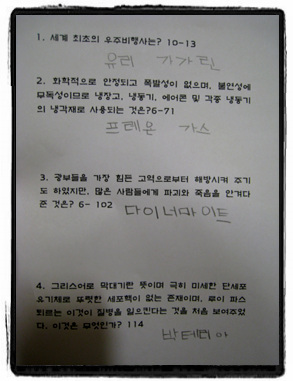 1. 세계 최초의 우주비행사는? 10-13
유리 가가린
2. 화학적으로 안정되고 폭발성이 없으며, 불안성에
무독성이므로 냉장고, 냉동기, 에어콘 및 각종 냉동기
의 냉각재로 사용되는 것은?6-71
프레온 가스
3. 광부들을 가장 힘든 고역으로부터 해방시켜 주기
도 하였지만, 많은 사람들에게 파괴와 죽음을 안겨다
준 것은? 6- 102
다이너마이트
4. 그리스어로 막대기란 뜻이며 극히 미세한 단세포
유기체로 뚜렷한 세포핵이 없는 존재이며, 루이 파스
퇴르는 이것이 질병을 일으킨다는 것을 처음 보여주었
다. 이것은 무엇인가? 114
박테리아